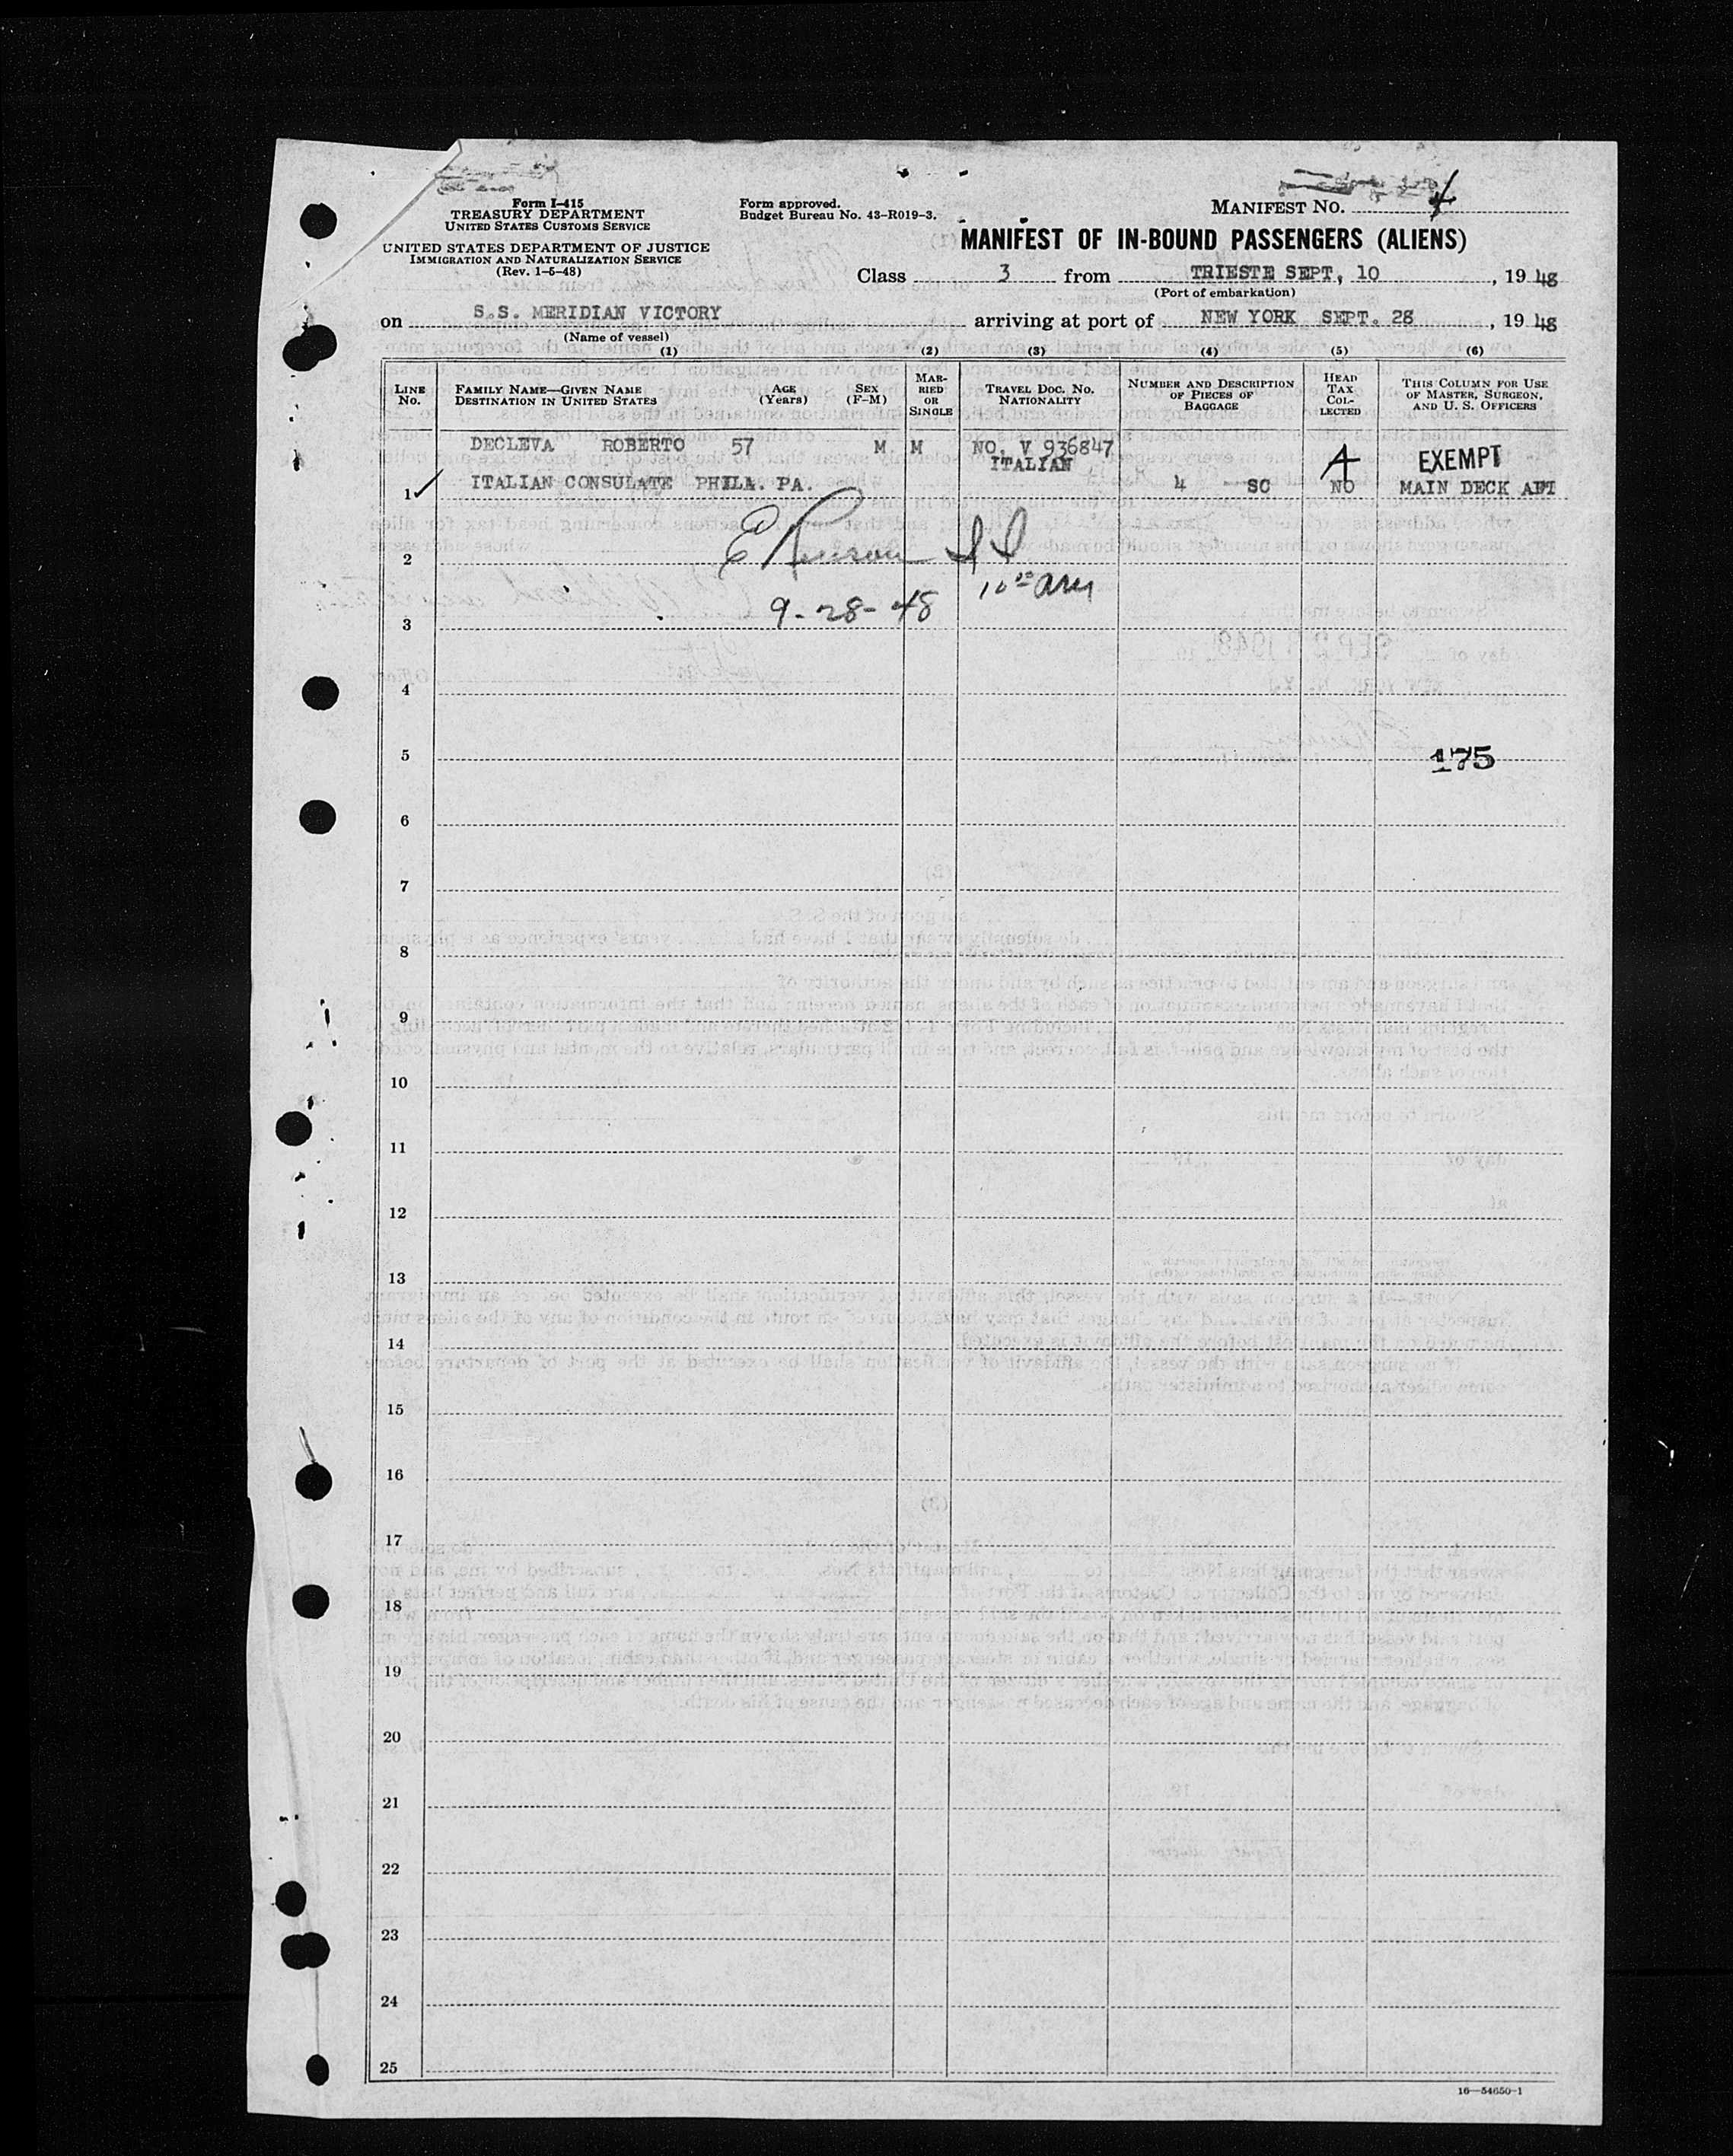 Form I-415
TREASURY DEPARTMENT
UNITED STATES CUSTOMS SERVICE
UNITED STATES DEPARTMENT OF JUSTICE
IMMIGRATION AND NATURALIZATION SERVICE
(Rev. 1-5-48)
Form approved.
Budget Bureau No. 43-R019-3.
MANIFEST NO.
MANIFEST OF IN-BOUND PASSENGERS (ALIENS)
Class 3 from TRIESTE SEPT, 10, 19 48
(Port of embarkation)
on S.S. MERIDIAN VICTORY arriving at port of NEW YORK SEPT. 28, 19 48
(Name of vessel)
(1) (2) (3) (4) (5) (6)
LINE No. FAMILY NAME—GIVEN NAME DESTINATION IN UNITED STATES AGE (Years) SEX (F-M) MARRIED OR SINGLE TRAVEL DOC. NO. NATIONALITY NUMBER AND DESCRIPTION OF PIECES OF BAGGAGE HEAD TAX COLLECTED THIS COLUMN FOR USE OF MASTER, SURGEON, AND U. S. OFFICERS
DECLEVA ROBERTO 57 M M NO. V 936847
ITALIAN A EXEMPT
1 ✓ ITALIAN CONSULATE PHILA. PA. 4 SC NO MAIN DECK AFT
2
10 00 am
3 9-28-48
4
5 175
6
7
8
9
10
11
12
13
14
15
16
17
18
19
20
21
22
23
24
25
16—54650-1